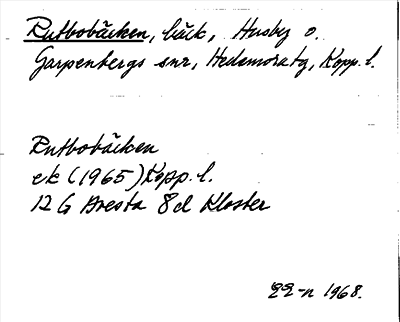 Rutbobäcken, bäck, Husby o.
Garpenbergs snr, Hedemoratg, Kopp. l.
Rutbobäcken
ek (1965) Kopp. l.
12 G Avesta 8d Kloster
1968.